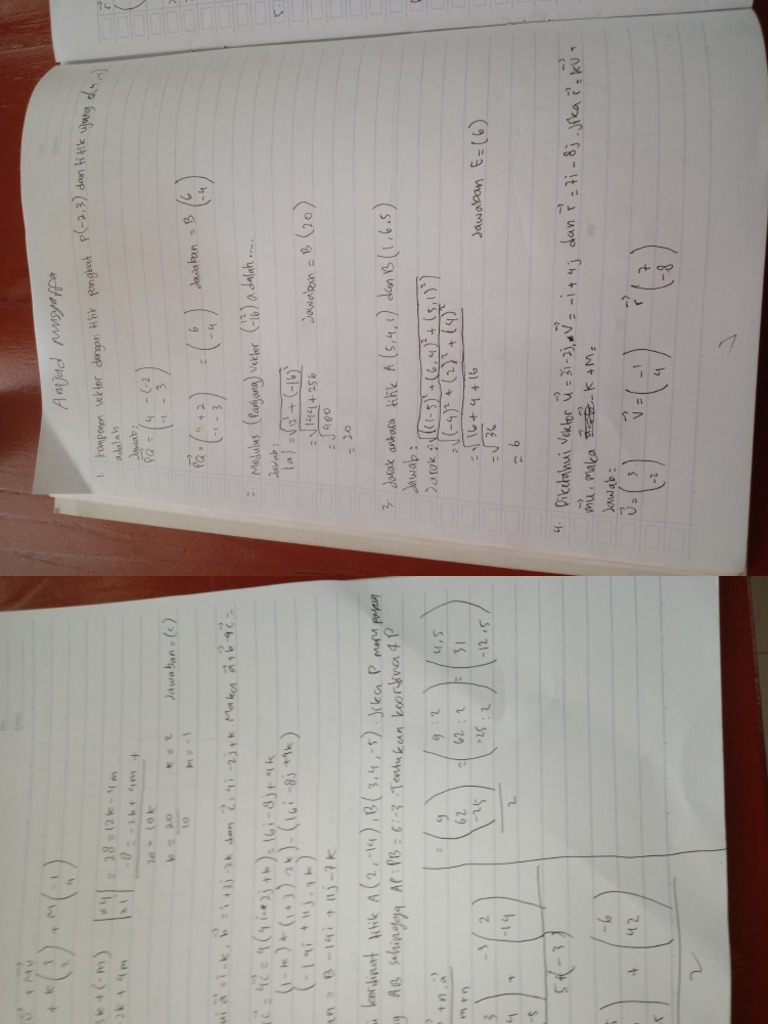 Amjad musyaffa
1. Komponen vektor dengan titik pangkal P(-2,3) dan titik ujung Q(4,-1)
adalah
Jawab:
PQ = (4 - (-2) / -1 - 3)
PQ = (4 + 2 / -1 - 3) = (6 / -4) Jawaban = B (6 / -4)
2. Modulus (Panjang) vektor (12 / -16) adalah....
Jawab:
|a| = √12² + (-16)²
= √144 + 256
= √400
= 20 Jawaban = B (20)
3. Jarak antara titik A (5,4,1) dan B (1,6,5)
Jawab:
Jarak: √((1-5)² + (6,4)² + (5,1)²)
= √(-4)² + (2)² + (4)²
= √16 + 4 + 16
= √36
= 6 Jawaban E = (6)
4. Diketahui vektor u = 3i - 2j, v = -i + 4j dan r = 7i - 8j. jika r = ku +
mv, maka k + m =
Jawab:
U = (3 / -2) V = (-1 / 4) r (7 / -8)
+ k (3 / 2) + m (-1 / 4)
3k + (-m) |x4| = 28 = 12k - 4m
2k + 4m |x1| -8 = -2k + 4m +
20 = 10k
k = 20 / 10 k = 2 Jawaban = (c)
m = -1
a = i - k, b = i + 3j - 2k dan c, 4i - 2j + k Maka a + b - 4c =
4c = 4(4i - 2j + k) = 16i - 8j + 4k
(1 - k) + (1 + 3j - 2k) - (16i - 8j + 4k)
(-14i + 11j - 7k)
= B - 14i + 11j - 7k
koordinat titik A (2,-14), B (3,4,-5). Jika P
AB sehingga AP:PB = 5:-3. Tentukan koordinat P
+ n.a
m + n
-3 (2 / -14)
5 + (-3)
+ (-6 / 42)
2
= (9 / 62 / -25) / 2 = (9 : 2 / 62 : 2 / -25 : 2) = (4,5 / 31 / -12,5)